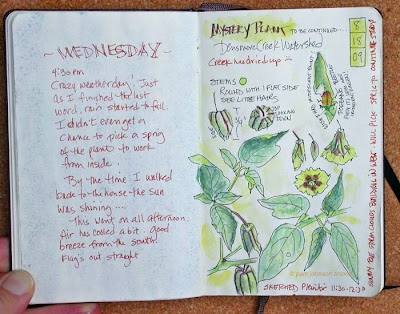 ~ WEDNESDAY ~
4:30 pm
Crazy weather day! Just
as I finished the last
word, rain started to fall.
I didn't even get a
chance to pick a sprig
of the plant to work
from inside.
By the time I walked
back to the house the sun
was shining ....
This went on all afternoon.
Air has cooled a bit. good
breeze from the south!
Flag's out straight
MYSTERY PLANT TO BE CONTINUED...
Densmore Creek Watershed
Creek has dried up
8
18
09
STEMS
ROUND WITH 1 FLAT SIDE
SEE LITTLE HAIRS
SUNNY BUT STORM CLOUDS BUILDING IN WEST. WILL PICK SPRIG TO CONTINUE STUDY
© pam johnson brickell
SKETCHED Plein Air 11:30-12:30